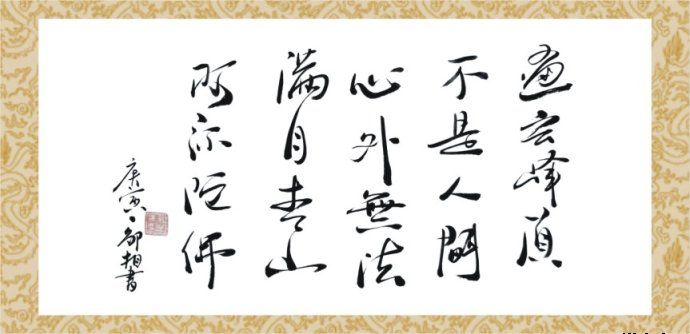 通玄峰頂
不是人間
心外無法
滿目青山
阿弥陀佛
庚寅 相書